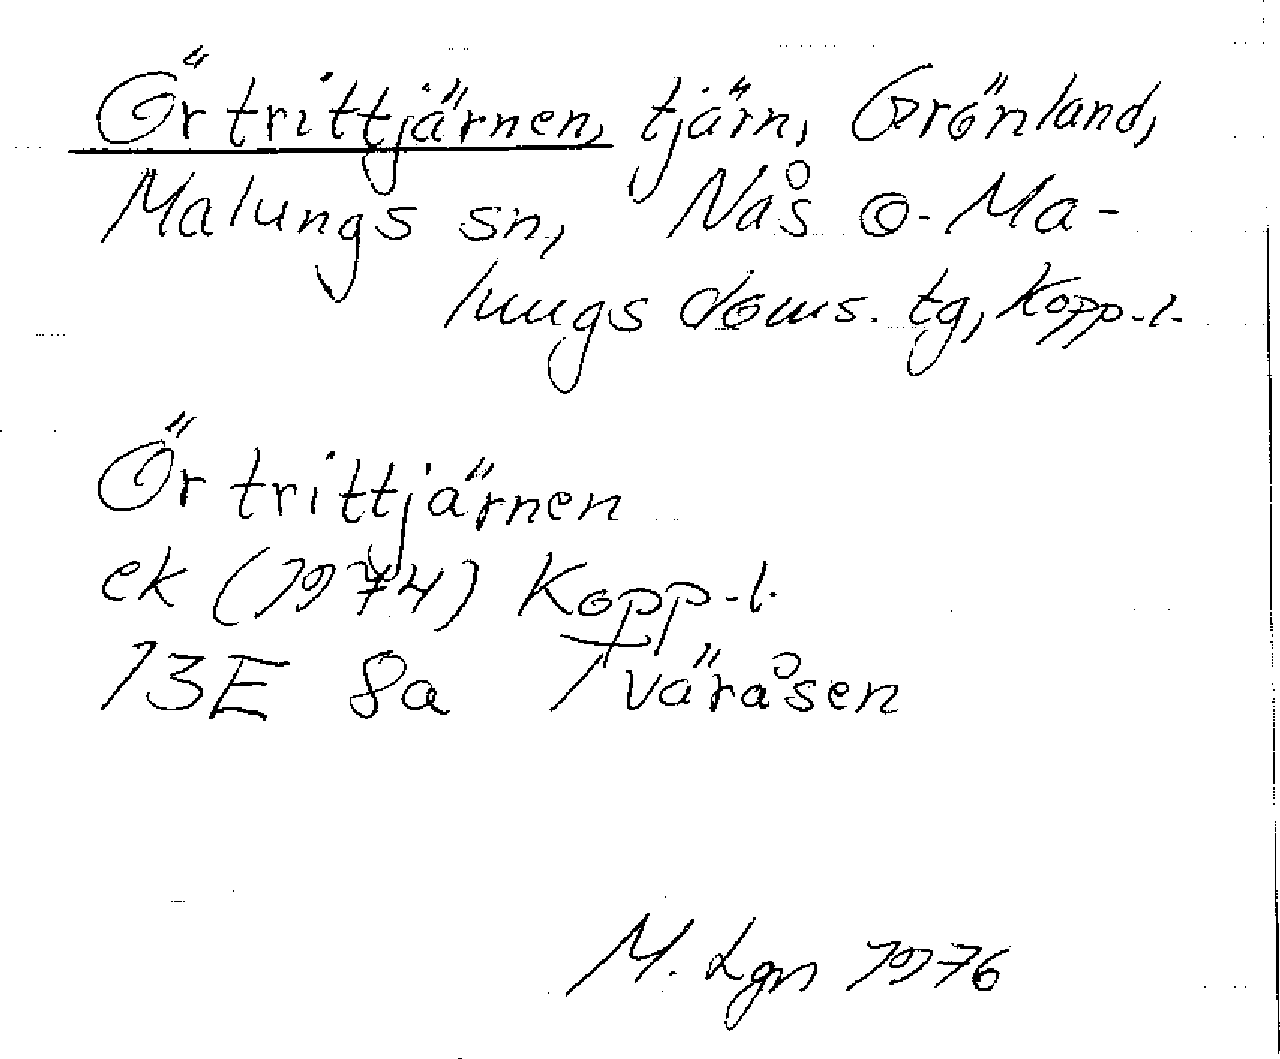 Örtrittjärnen, tjärn, Grönland,
Malungs sn, Nås o. Ma-
lungs doms. tg, Kopp. l.
Örtrittjärnen
ek (1974) Kopp. l.
13E 8a Tväråsen
M. Lgn 1976